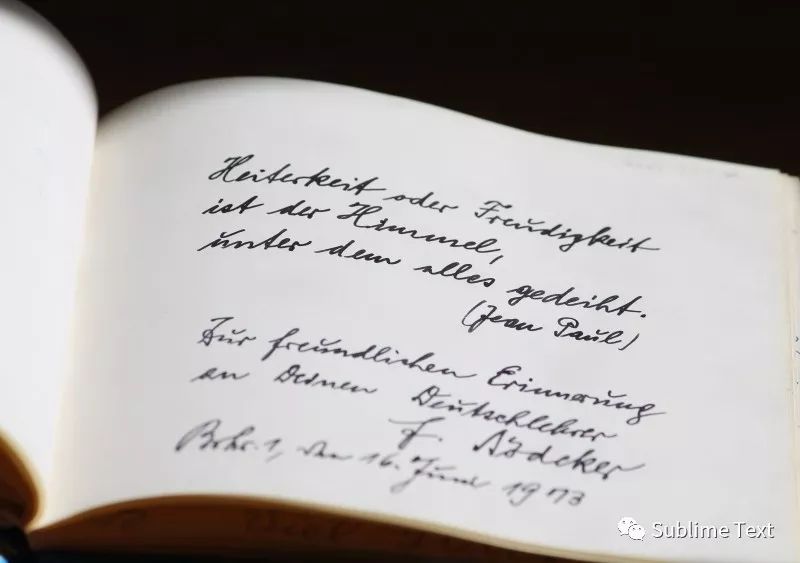 Heiterkeit oder Freudigkeit
ist der Himmel,
unter dem alles gedeiht.
(Jean Paul)
Zur freundlichen Erinnerung
an Deinen Deutschlehrer
F.
den 16. Juni 1973
Sublime Text